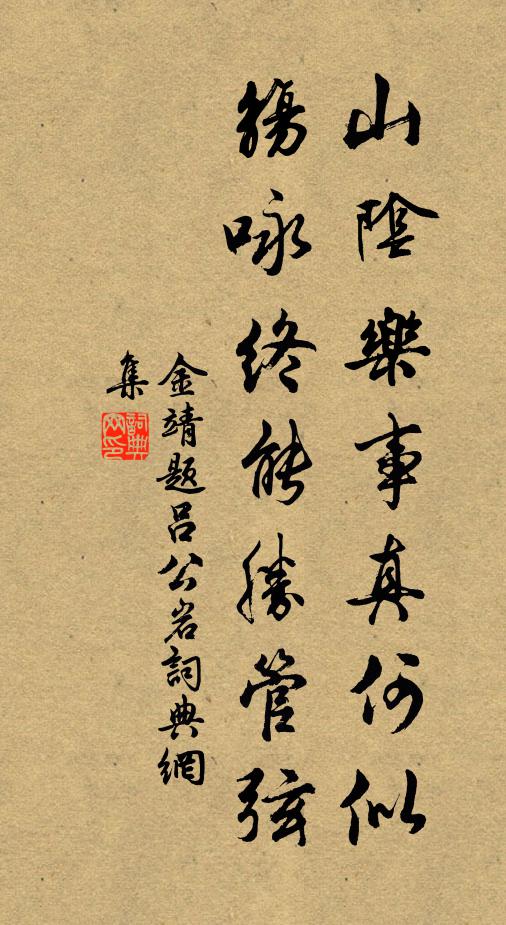 山陰樂事真何似
觴咏終能勝管弦
金靖題呂公岩詞典網
集
詞典
网印